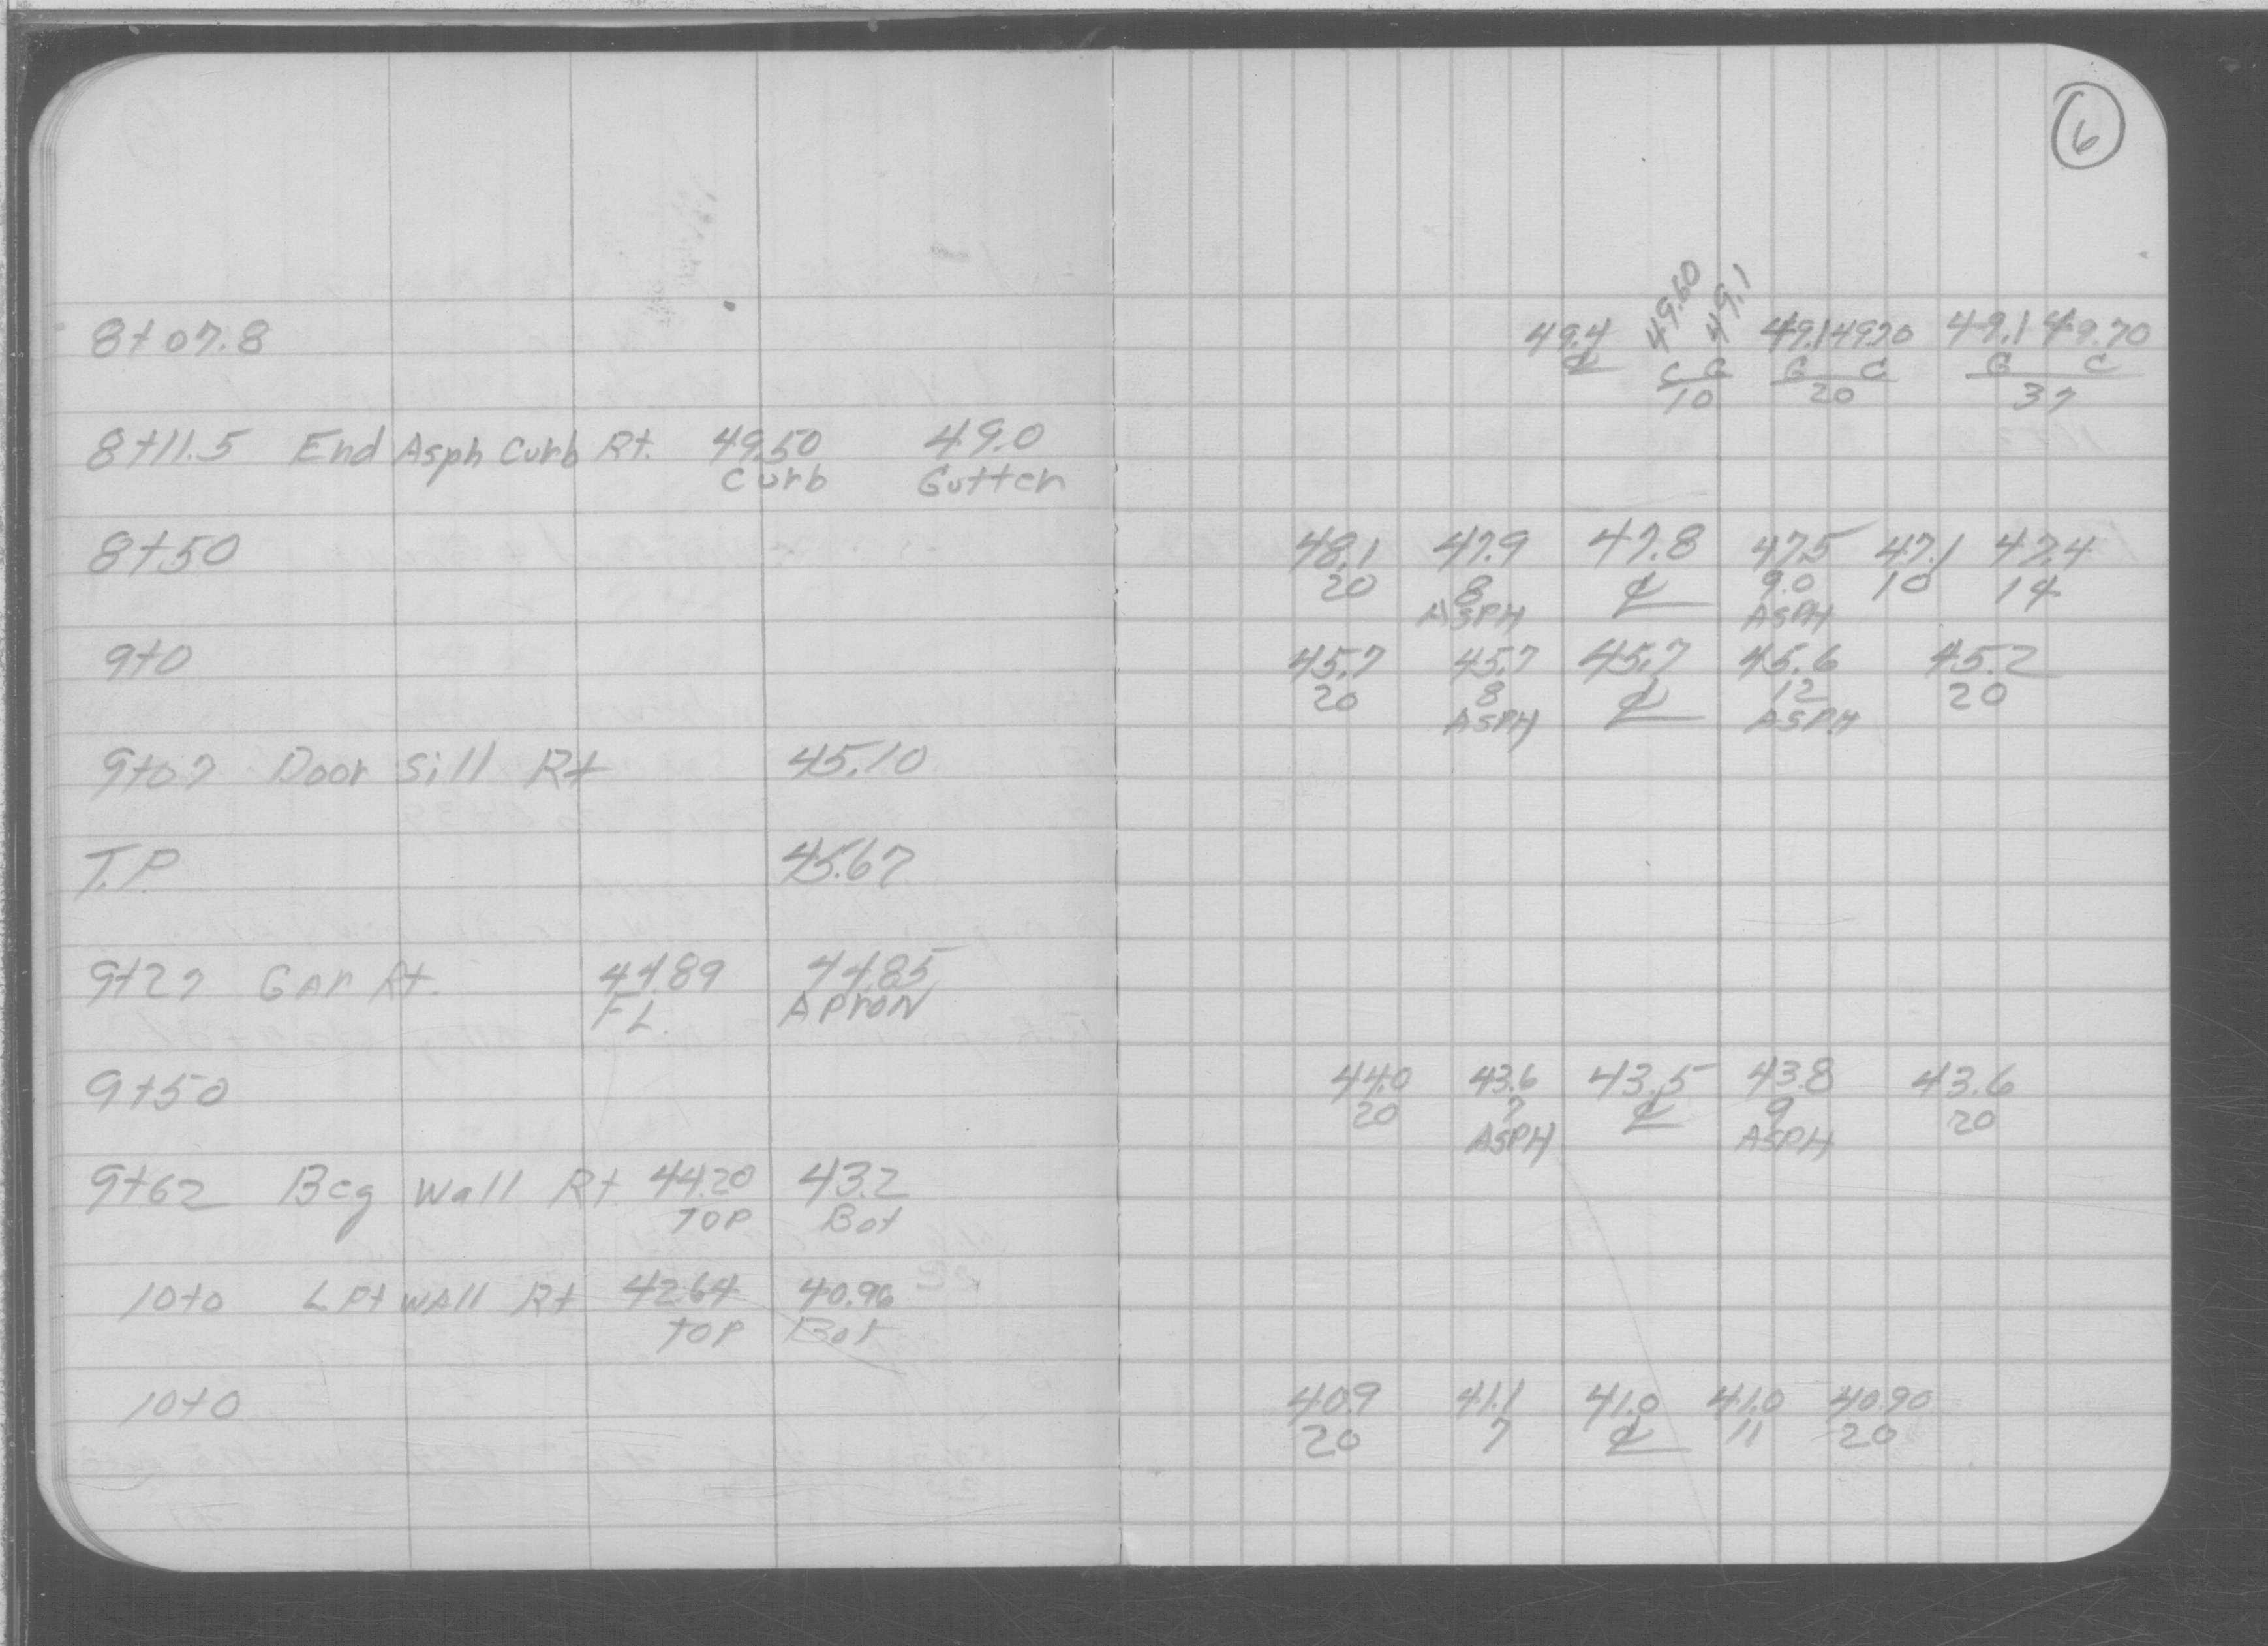 6
49.60 49.1
8+07.8 49.4 49.1 49.70 49.1 49.70
℄ C G G C G C
10 20 37
8+11.5 End Asph Curb Rt. 49.50 49.0
Curb Gutter
8+50 48.1 47.9 47.8 47.5 47.1 47.4
20 8 ℄ 9.0 10 14
ASPH ASPH
9+0 45.7 45.7 45.7 45.6 45.2
20 8 ℄ 12 20
ASPH ASPH
9+07 Door Sill Rt 45.10
T.P. 45.67
9+27 Gar Rt. 44.89 44.85
FL. Apron
9+50 44.0 43.6 43.5 43.8 43.6
20 7 ℄ 9 20
ASPH ASPH
9+62 Beg Wall Rt. 44.20 43.2
TOP Bot
10+0 L Pt Wall Rt 42.64 40.96
TOP Bot
10+0 40.9 41.1 41.0 41.0 40.90
20 7 ℄ 11 20